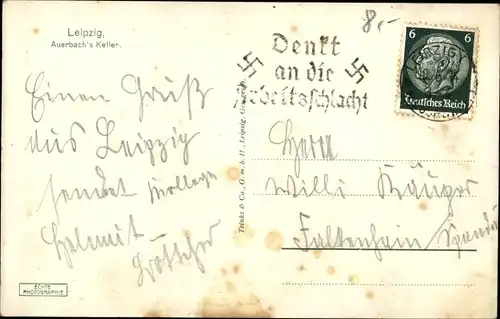 Leipzig,
Auerbach's Keller.
8,-
Denkt
an die
Arbeitsschlacht
6 6
LEIPZIG
Deutsches Reich
Einen Gruß
aus Leipzig
sendet Kollege
Helmut
Böttcher
Trinks & Co., G. m. b. H., Leipzig
Herrn
Willi Krüger
Falkenhain Spandau
ECHTE
PHOTOGRAPHIE